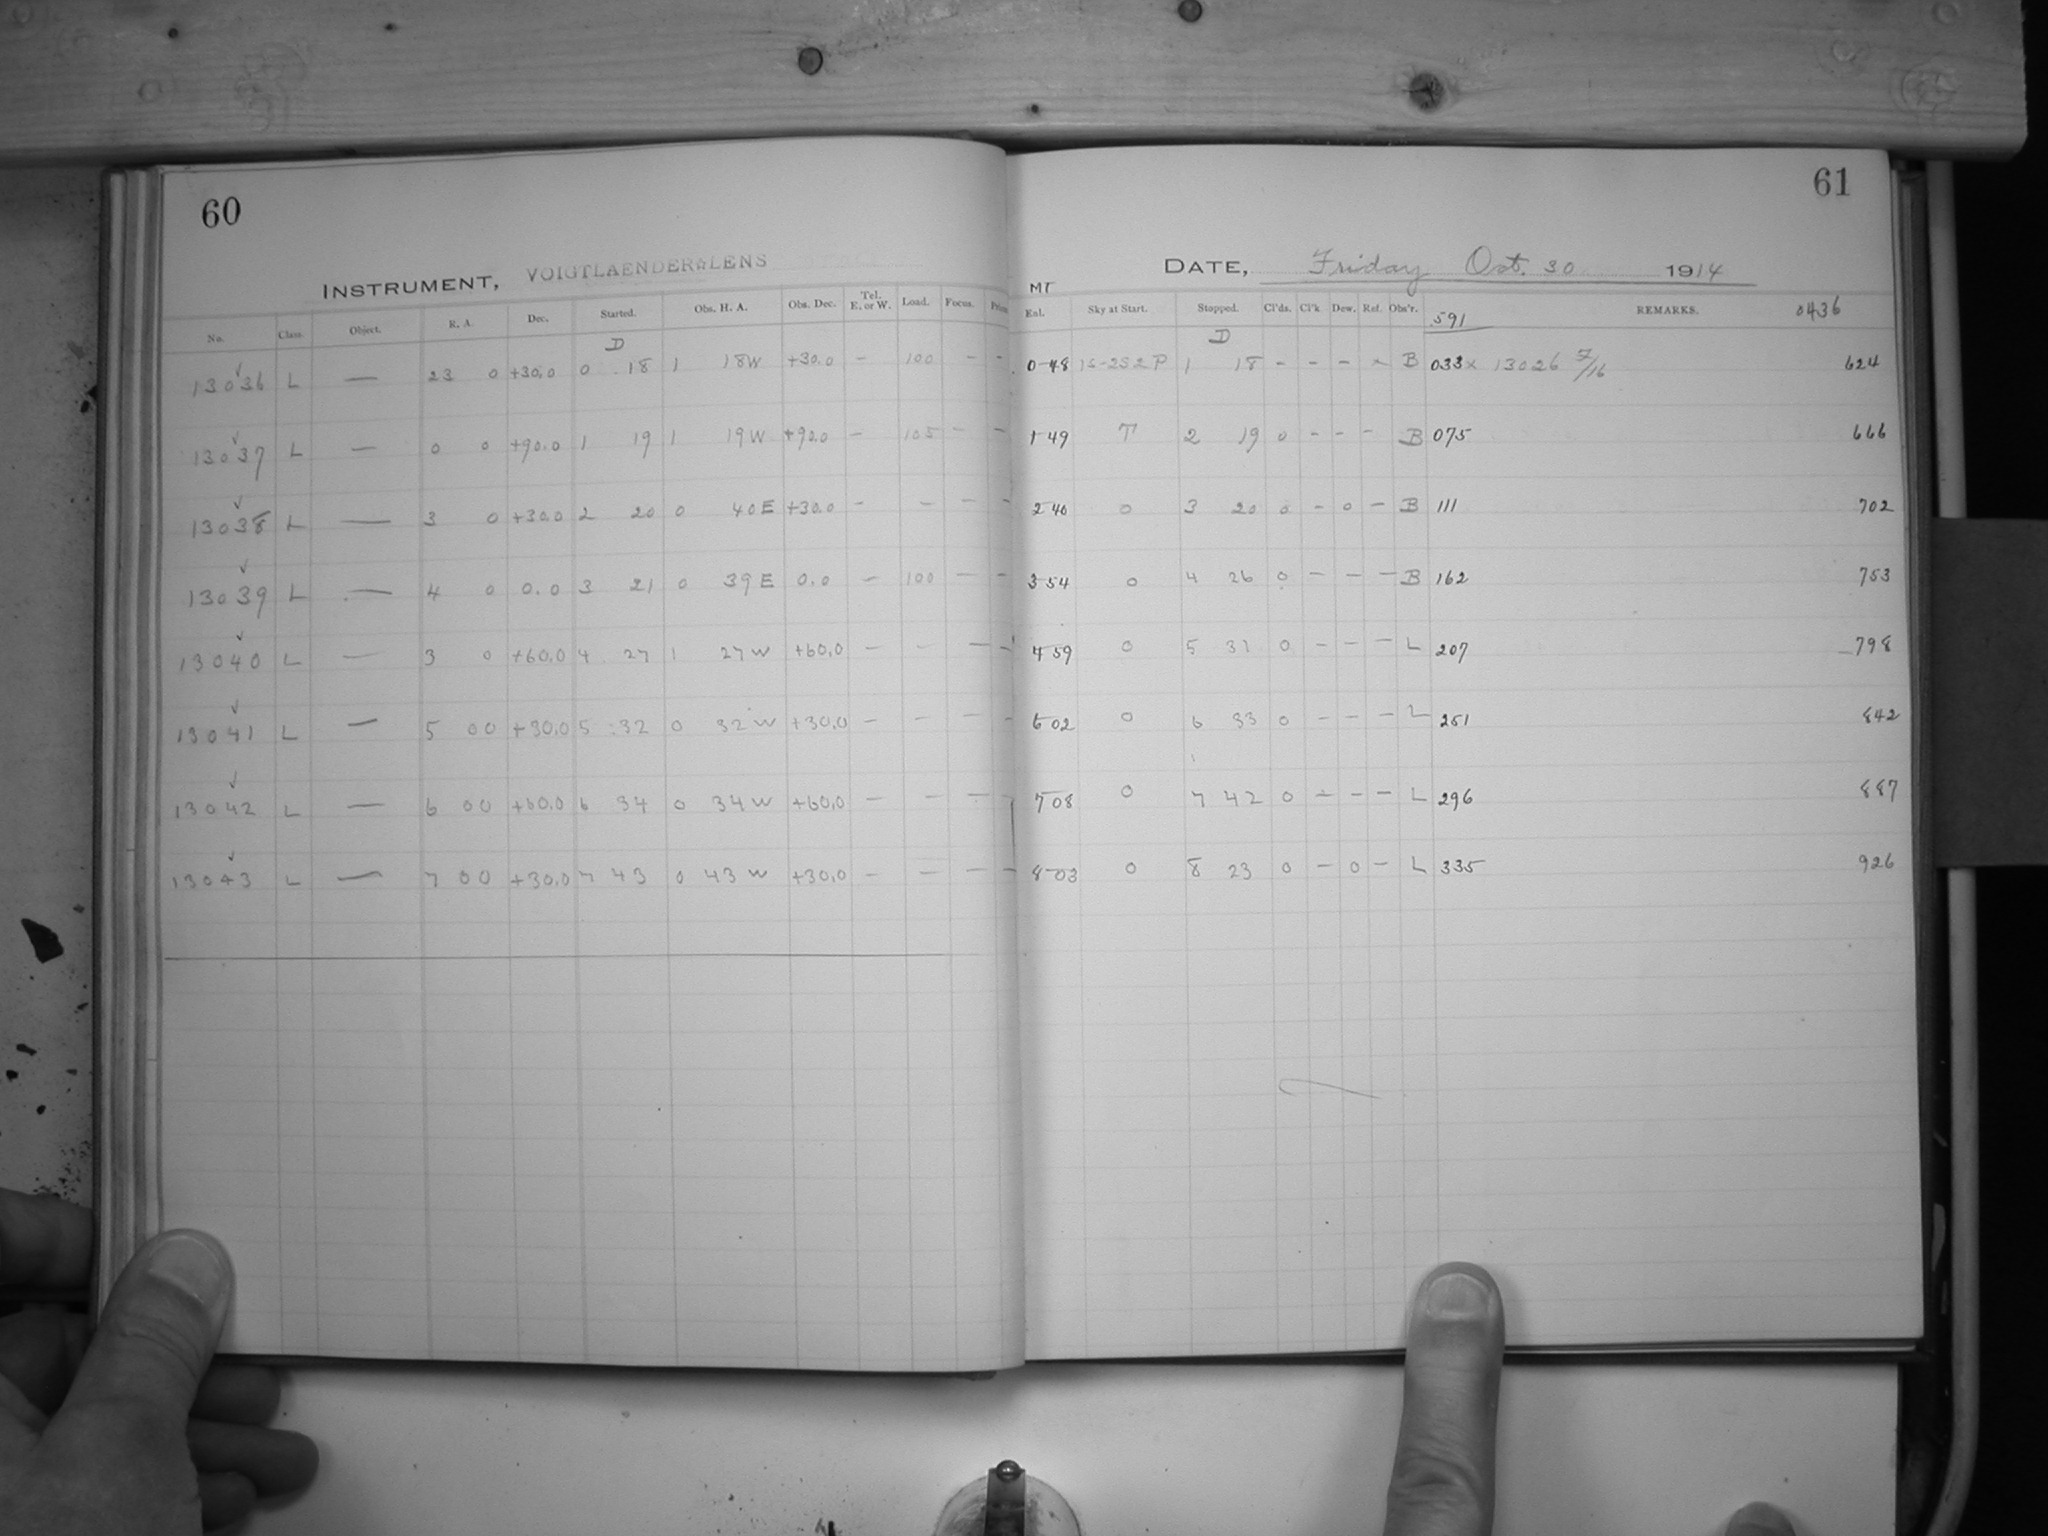 60
INSTRUMENT, VOIGTLAENDER LENS
No. Class. Object. R. A. Dec. Started. Obs. H. A. Obs. Dec. Tel. E. or W. Load. Focus.
D
13036 L — 23 0 +30.0 0 18 1 18W +30.0 – 100 – –
13037 L — 0 0 +90.0 1 19 1 19W +90.0 – 105 – –
13038 L — 3 0 +30.0 2 20 0 40E +30.0 – – – –
13039 L — 4 0 0.0 3 21 0 39E 0.0 – 100 – –
13040 L — 3 0 +60.0 4 27 1 27W +60.0 – – – –
13041 L — 5 00 +30.0 5 32 0 32W +30.0 – – – –
13042 L — 6 00 +60.0 6 34 0 34W +60.0 – – – –
13043 L — 7 00 +30.0 7 43 0 43W +30.0 – – – –
61
DATE, Friday Oct. 30 1914
MT
Exl. Sky at Start. Stopped. Cl'ds. Cl'k Dew. Ref. Obs'r. .591 REMARKS. 0436
D
0 48 1S-2S2P 1 18 – – – – B 033x 13026 7/16 624
1 49 T 2 19 0 – – – B 075 666
2 40 0 3 20 0 – 0 – B 111 702
3 54 0 4 26 0 – – – B 162 753
4 59 0 5 31 0 – – – L 207 798
6 02 0 6 33 0 – – – L 251 842
7 08 0 7 42 0 – – – L 296 887
8 03 0 8 23 0 – 0 – L 335 926